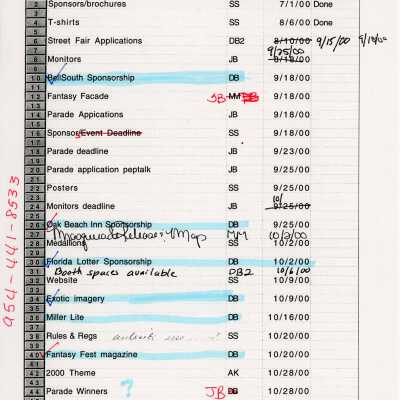 2 Sponsors/brochures SS 7/1/00 Done
4 T-shirts SS 8/6/00 Done
6 Street Fair Applications DB2 8/10/00 9/15/00 9/18/00
9/25/00
8 Monitors JB 8/18/00
10 BellSouth Sponsorship DB 9/18/00
12 Fantasy Facade JB MM DB 9/18/00
14 Parade Appications JB 9/18/00
16 Sponsors/Event Deadline SS 9/18/00
18 Parade deadline JB 9/23/00
20 Parade application peptalk JB 9/25/00
22 Posters SS 9/25/00
24 Monitors deadline JB 10/ 9/25/00
26 Oak Beach Inn Sponsorship DB 9/25/00
27 Masquerade Releases/Map MM 10/2/00
28 Medallions SS 10/2/00
30 Florida Lotter Sponsorship DB 10/2/00
31 Booth spaces available DB2 10/6/00
32 Website SS 10/9/00
34 Exotic imagery DB 10/9/00
36 Miller Lite DB 10/16/00
38 Rules & Regs SS 10/20/00
40 Fantasy Fest magazine DB 10/20/00
42 2000 Theme AK 10/28/00
44 Parade Winners ? JB DB 10/28/00
954-441-8533